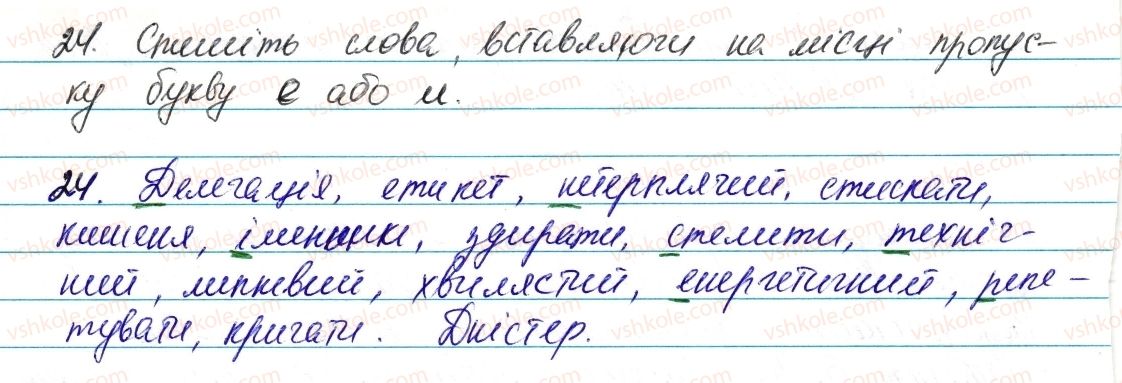 24. Спишіть слова, вставляючи на місці пропус-
ку букву е або и.
24. Делегація, етикет, нетерплячий, стискати,
кишеня, іменинки, здирати, стелити, техніч-
ний, липневий, хвилястий, енергетичний, репе-
тувати, кричати. Дністер.